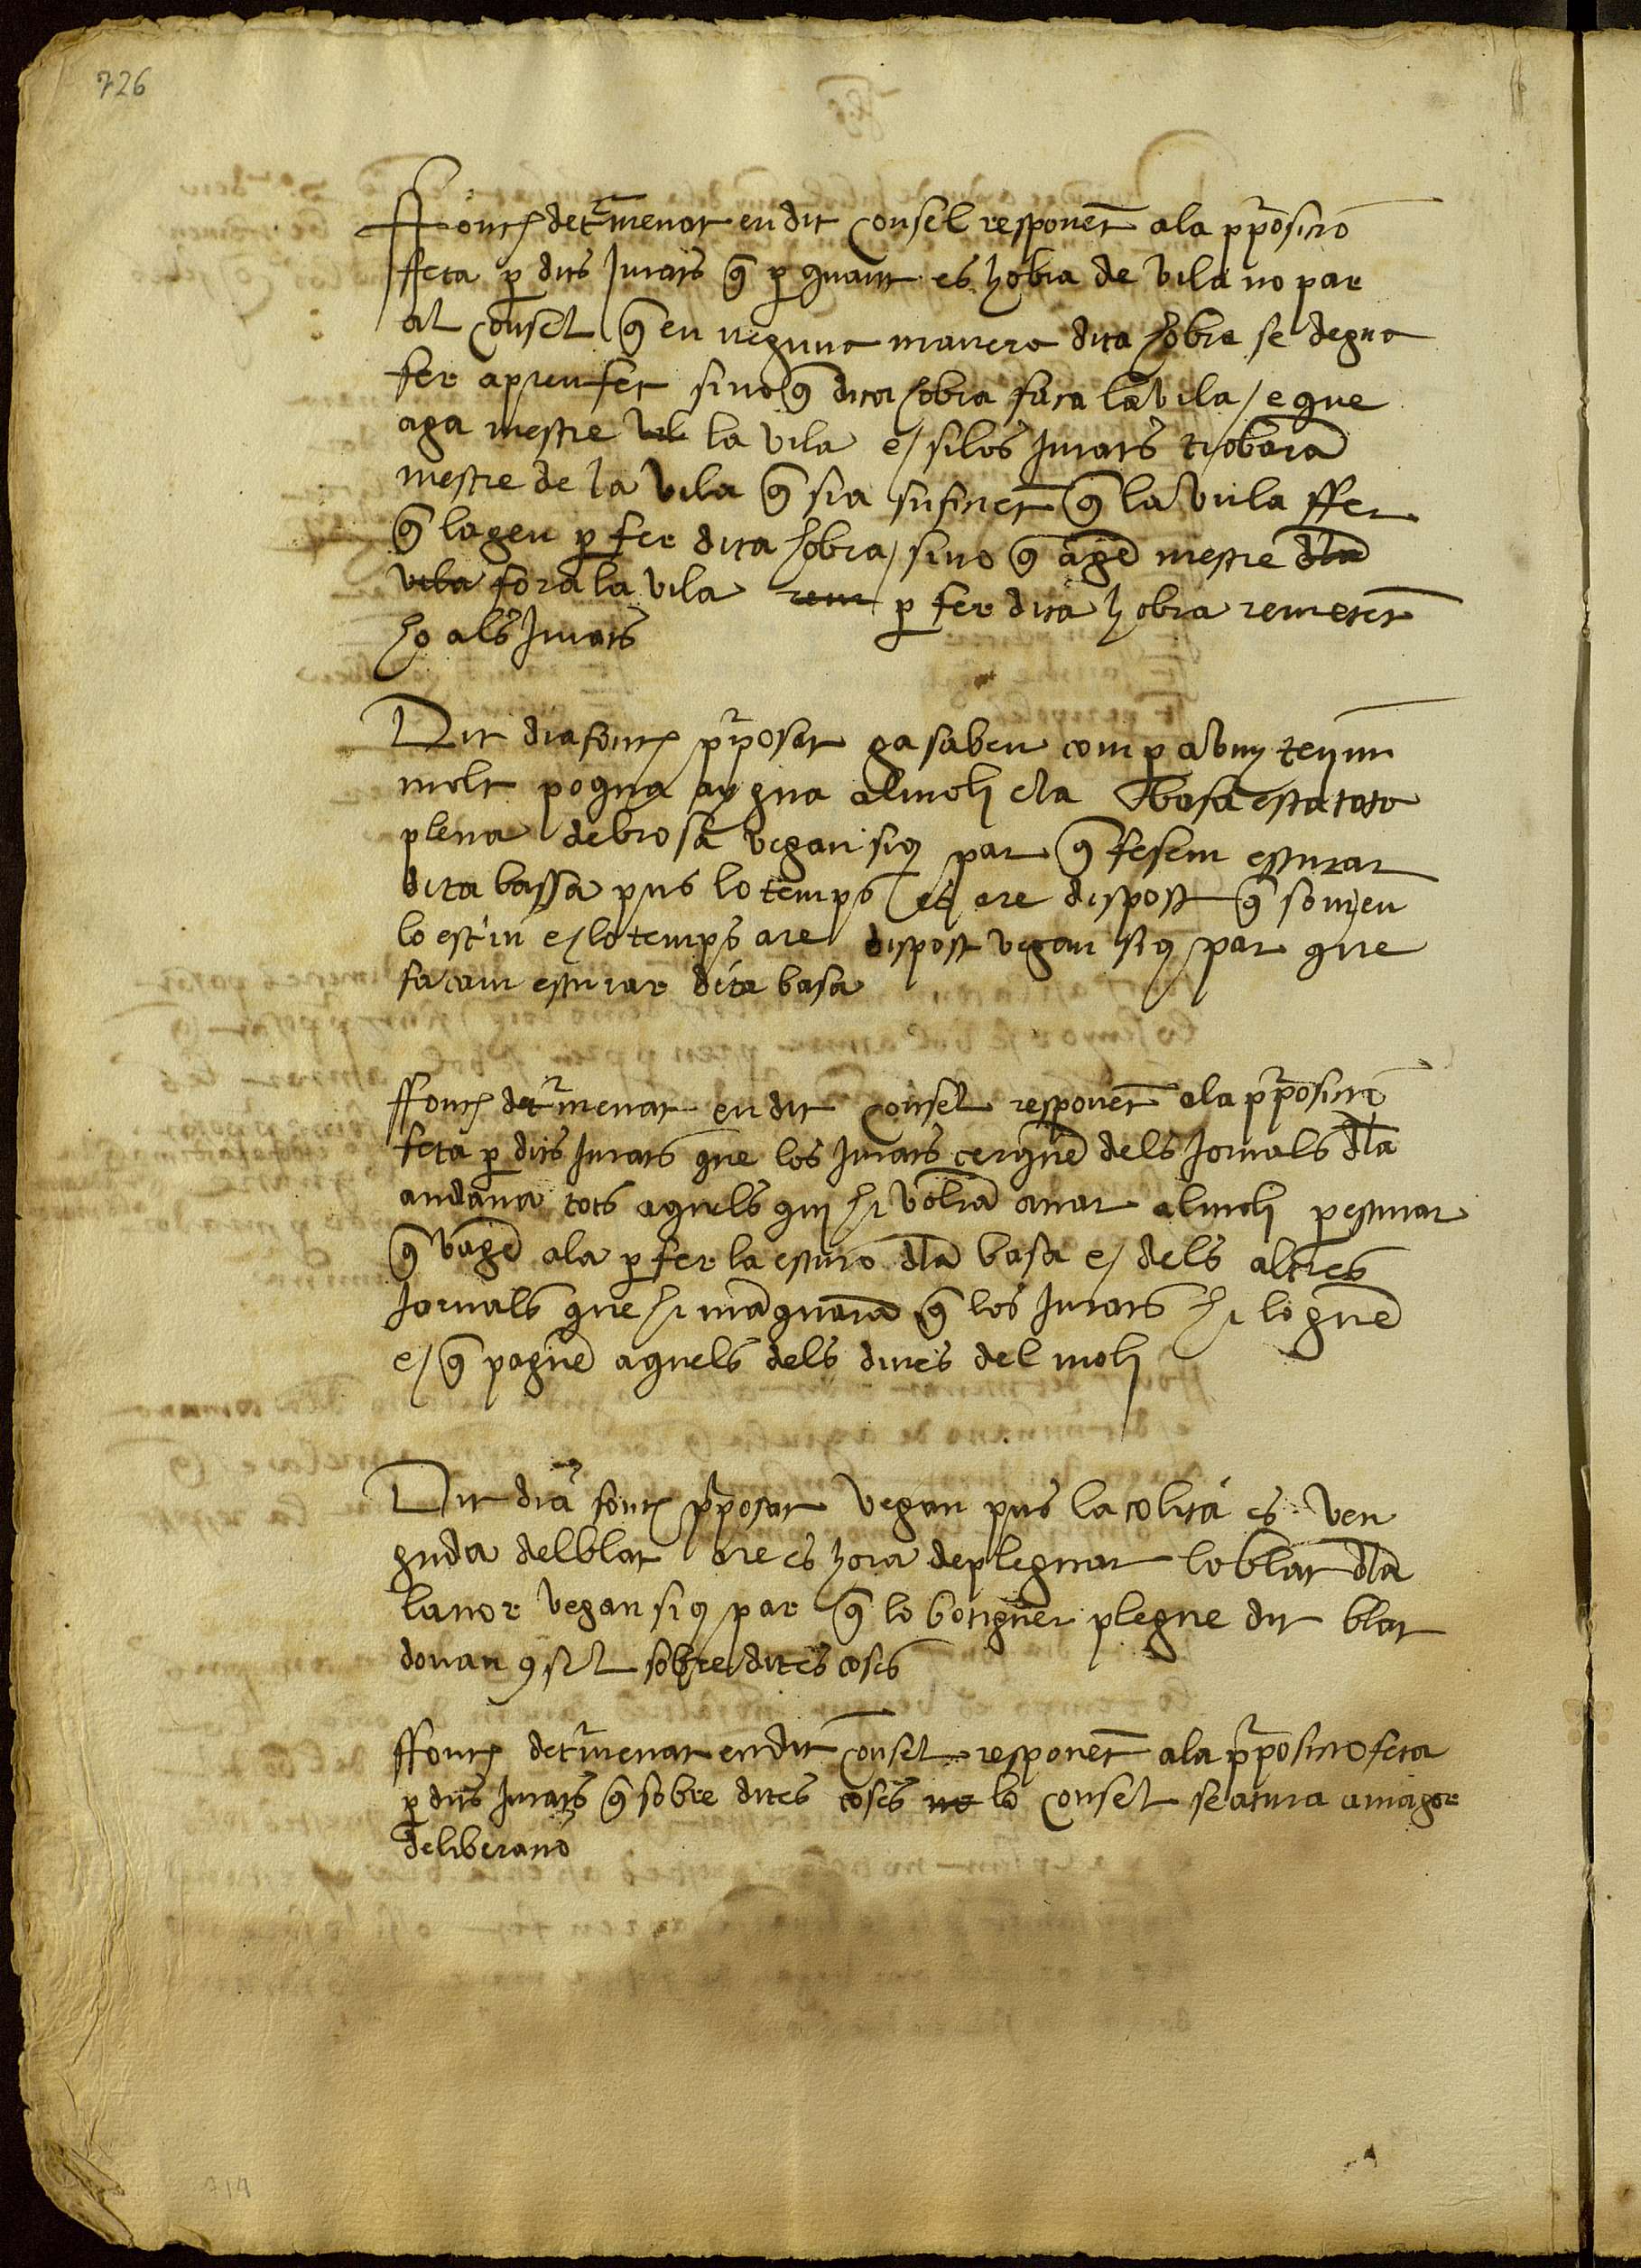 726
ffonch det'menat en dit consel responēt ala p'posicio
ffeta p dits Jurats q̄ p quant es hobra de vila no par
al consel q̄ en neguna manera dita hobra se degua
fer apreu fet sino q̄ dita hobra faca la vila / e que
aga mestre vil la vila e / silos Jurats trobarā
mestre de la vila q̄ sia suficiēt q̄ la vula ffer
q̄ lagen p fer dita hobra / sino q̄ agē mestre dla
vila fora la vila rem p fer dita hobra remetēt
ho als Jurats
Dit dia fonch p'posat ga saben com p avuy tenim
molt pogua aygua al moli e la basa esta tota
plena de brosa vegan siq̄ par q̄ fesem escurar
dita bassa pus lo temps es are dispost q̄ som en
lo estiu e / lo temps are dispost vegan siq̄ par que
facam escurar dita basa
ffonch det'menat en dit consel responēt ala p'posicio
feta p dits Jurats que los Jurats cerquē dels Jornals dla
andana tots aquels qui hi volrā anar al moli p escurar
q̄ vagē ala p fer la escuro dla basa e / dels altres
Jornals que hi māquarā q̄ los Jurats hi loguē
e / q̄ paguē aquels dels dines del moli
Dit dia fonch p'posat vegan pus la colita es ven
guda del blat are es hora de pleguar lo blat dla
lauor vegan siq̄ par q̄ lo botiguer plegue dit blat
donan 9sel sobre dites coses
ffonch det'menat en dit consel responēt ala p'posicio feta
p dits Jurats q̄ sobre dites coses no lo consel se atura a magor
deliberacio
719